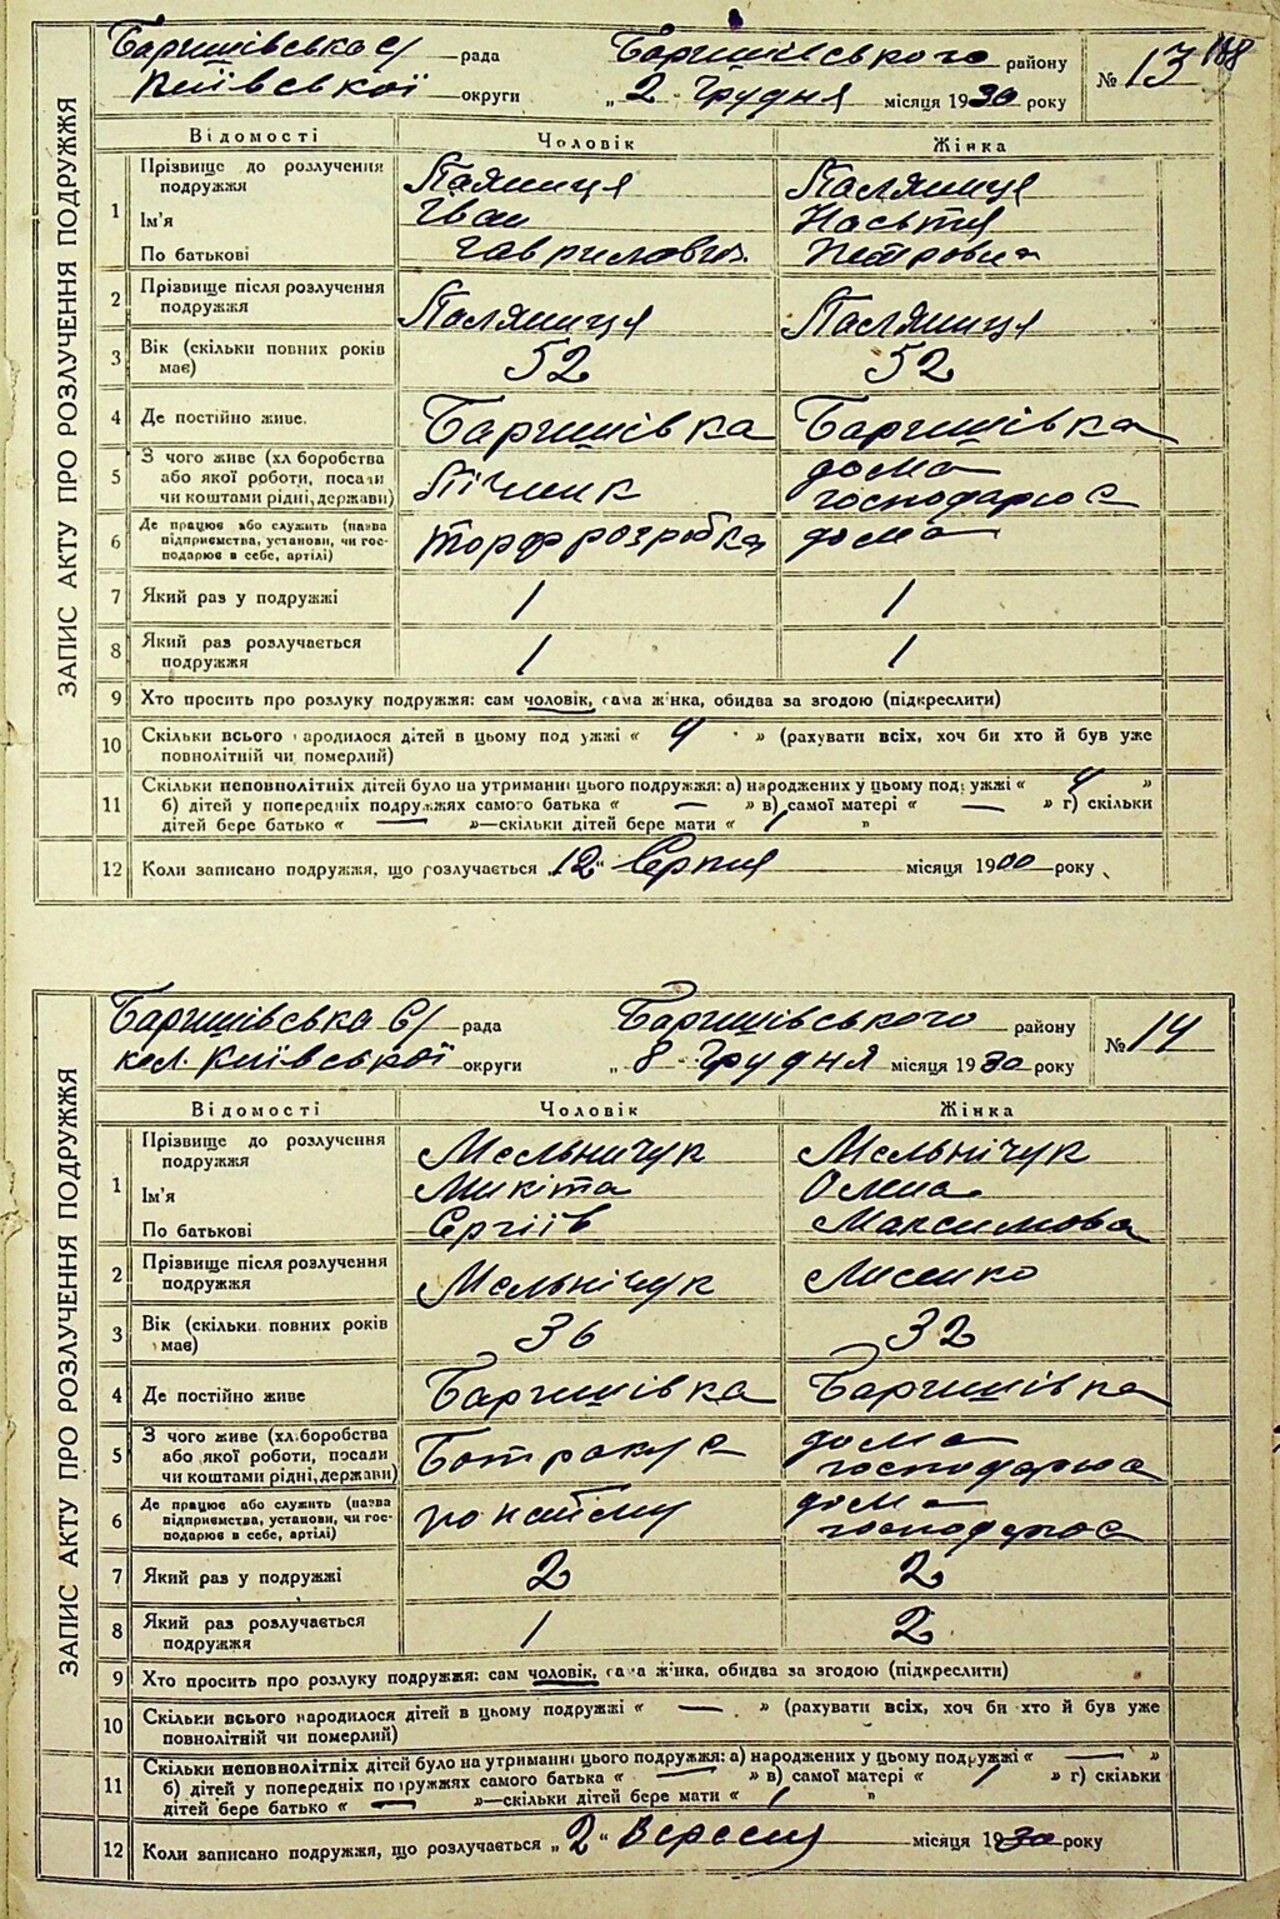 188
ЗАПИС АКТУ ПРО РОЗЛУЧЕННЯ ПОДРУЖЖЯ
Баришівська с/ рада Баришівського району № 13
Київської округи „ 2 " Грудня місяця 1930 року
Відомості Чоловік Жінка
1 Прізвище до розлучення подружжя Паляниця Паляниця
Ім'я Іван Настья
По батькові Гаврилович Петровна
2 Прізвище після розлучення подружжя Паляниця Паляниця
3 Вік (скільки повних років має) 52 52
4 Де постійно живе. Баришівка Баришівка
5 З чого живе (хл боробства або якої роботи, посади чи коштами рідні, держави) Пічник дома господарює
6 Де працює або служить (назва підприємства, установи, чи господарює в себе, артілі) торфрозробка дома
7 Який раз у подружжі 1 1
8 Який раз розлучається подружжя 1 1
9 Хто просить про розлуку подружжя: сам чоловік, сама жінка, обидва за згодою (підкреслити)
10 Скільки всього народилося дітей в цьому подружжі « 4 » (рахувати всіх, хоч би хто й був уже
повнолітній чи померлий)
11 Скільки неповнолітніх дітей було на утриманні цього подружжя: а) народжених у цьому подружжі « 4 »
б) дітей у попередніх подружжях самого батька « — » в) самої матері « — » г) скільки
дітей бере батько « — »—скільки дітей бере мати « »
12 Коли записано подружжя, що розлучається „ 12 " Серпня місяця 1900 року
ЗАПИС АКТУ ПРО РОЗЛУЧЕННЯ ПОДРУЖЖЯ
Баришівська С/ рада Баришівського району № 14
кол. Київської округи „ 8 " Грудня місяця 1930 року
Відомості Чоловік Жінка
1 Прізвище до розлучення подружжя Мельничук Мельнічук
Ім'я Микіта
По батькові Сергіїв Максимова
2 Прізвище після розлучення подружжя Мельнічук Лисенко
3 Вік (скільки повних років має) 36 32
4 Де постійно живе Баришівка Баришівка
5 З чого живе (хл.боробства або якої роботи, посади чи коштами рідні, держави) Батракує дома господарює
6 Де працює або служить (назва підприємства, установи, чи господарює в себе, артілі) по найму дома господарює
7 Який раз у подружжі 2 2
8 Який раз розлучається подружжя 1 2
9 Хто просить про розлуку подружжя: сам чоловік, сама жінка, обидва за згодою (підкреслити)
10 Скільки всього народилося дітей в цьому подружжі « — » (рахувати всіх, хоч би хто й був уже
повнолітній чи померлий)
11 Скільки неповнолітніх дітей було на утриманні цього подружжя: а) народжених у цьому подружжі « — »
б) дітей у попередніх подружжях самого батька « — » в) самої матері « 1 » г) скільки
дітей бере батько « — »—скільки дітей бере мати « 1 »
12 Коли записано подружжя, що розлучається „ 2 " Вересня місяця 1930 року